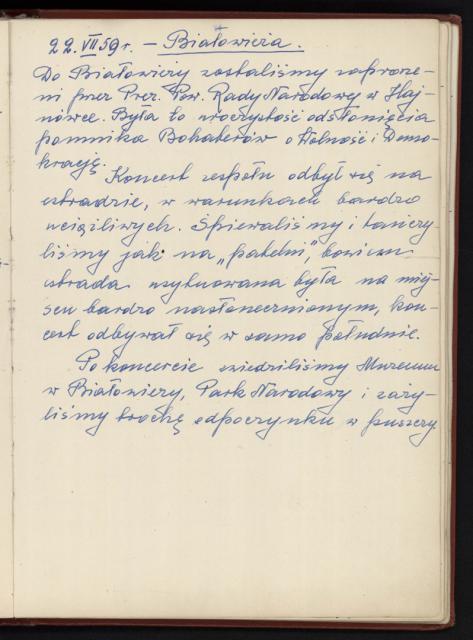 22.VII 59 r. – Białowieża.
Do Białowieży zostaliśmy zaprosze-
ni przez Prez. Pow. Rady Narodowej w Haj-
nówce. Była to uroczystość odsłonięcia
pomnika Bohaterów o Wolność i Demo-
krację.
Koncert zespołu odbył się na
estradzie, w warunkach bardzo
uciążliwych. Śpiewaliśmy i tańczy-
liśmy jak na „patelni", bowiem
estrada usytuowana była na miej-
scu bardzo nasłonecznionym, kon-
cert odbywał się w samo południe.
Po koncercie zwiedziliśmy Muzeum
w Białowieży, Park Narodowy i zaży-
liśmy trochę odpoczynku w puszczy